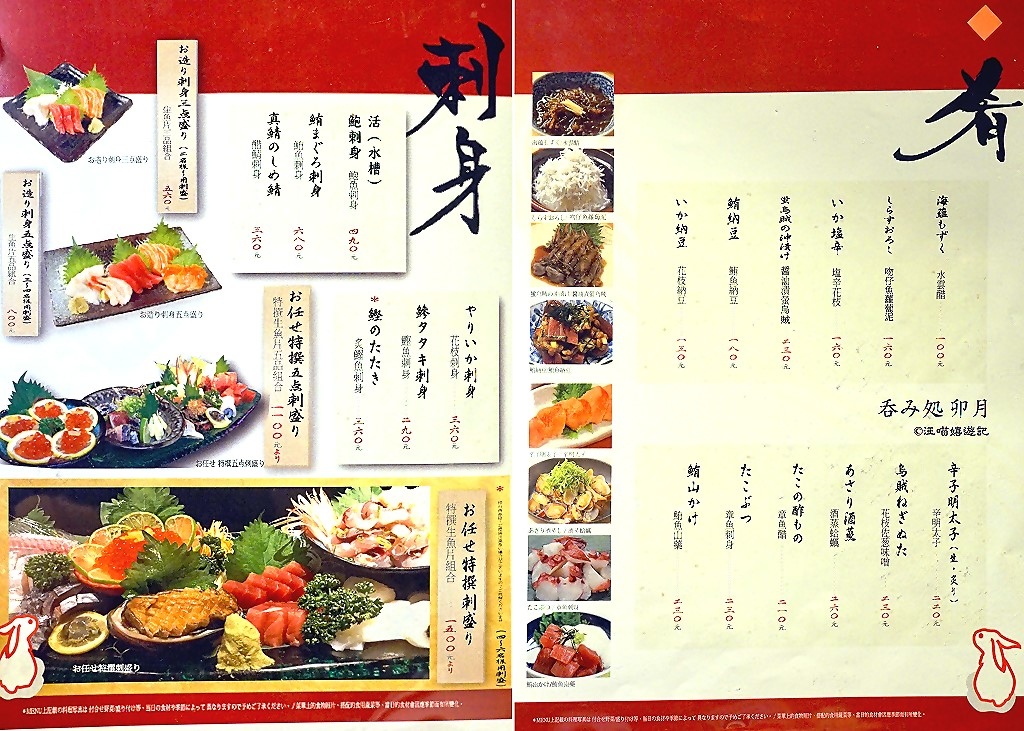 刺身
お造り刺身三点盛り（二名様用刺盛）
生魚片三品組合
五六〇元
お造り刺身三点盛り
お造り刺身五点盛り（三～四名様用刺盛）
生魚片五品組合
八〇〇元
お造り刺身五点盛り
活（水槽）
鮑刺身 鮑魚刺身 四九〇元
鮪まぐろ刺身 鮪魚刺身 六八〇元
真鯖のしめ鯖 醋鯖刺身 三六〇元
お任せ特撰五点刺盛り
特撰生魚片五品組合 一一〇〇元より
お任せ 特撰五点刺盛り
やりいか刺身 花枝刺身 三六〇元
鯵タタキ刺身 鰺魚刺身 二九〇元
*鰹のたたき 炙鰹魚刺身 三六〇元
お任せ特撰刺盛り（四～六名様用刺盛）
特撰生魚片組合 一五〇〇元より
お任せ特撰刺盛り
*MENU上記載の料理写真は 付合せ野菜/盛り付け等、当日の食材や季節によって異なりますので予めご了承ください。/ 菜單上的食物照片、搭配的食用蔬菜等、當日的食材會因應季節而有所變化。
肴
海蘊もずく 水雲醋 一〇〇元
しらすおろし 吻仔魚蘿蔔泥 一六〇元
いか塩辛 塩辛花枝 一六〇元
蛍烏賊の沖漬け 醬油漬螢烏賊 二三〇元
鮪納豆 鮪魚納豆 一八〇元
いか納豆 花枝納豆 一三〇元
呑み処 卯月
©汪喵嬉遊記
辛子明太子（生・炙り） 辛明太子 二二〇元
烏賊ねぎぬた 花枝佐葱味噌 二三〇元
あさり酒蒸 酒蒸蛤蠣 二六〇元
たこの酢もの 章魚醋 二一〇元
たこぶつ 章魚刺身 二三〇元
鮪山かけ 鮪魚山藥 二三〇元
しらすおろし / 吻仔魚蘿蔔泥
あさり酒蒸し / 酒蒸蛤蠣
たこぶつ / 章魚刺身
鮪山かけ/鮪魚山藥
*MENU上記載の料理写真は 付合せ野菜/盛り付け等、当日の食材や季節によって異なりますので予めご了承ください。/ 菜單上的食物照片、搭配的食用蔬菜等、當日的食材會因應季節而有所變化。